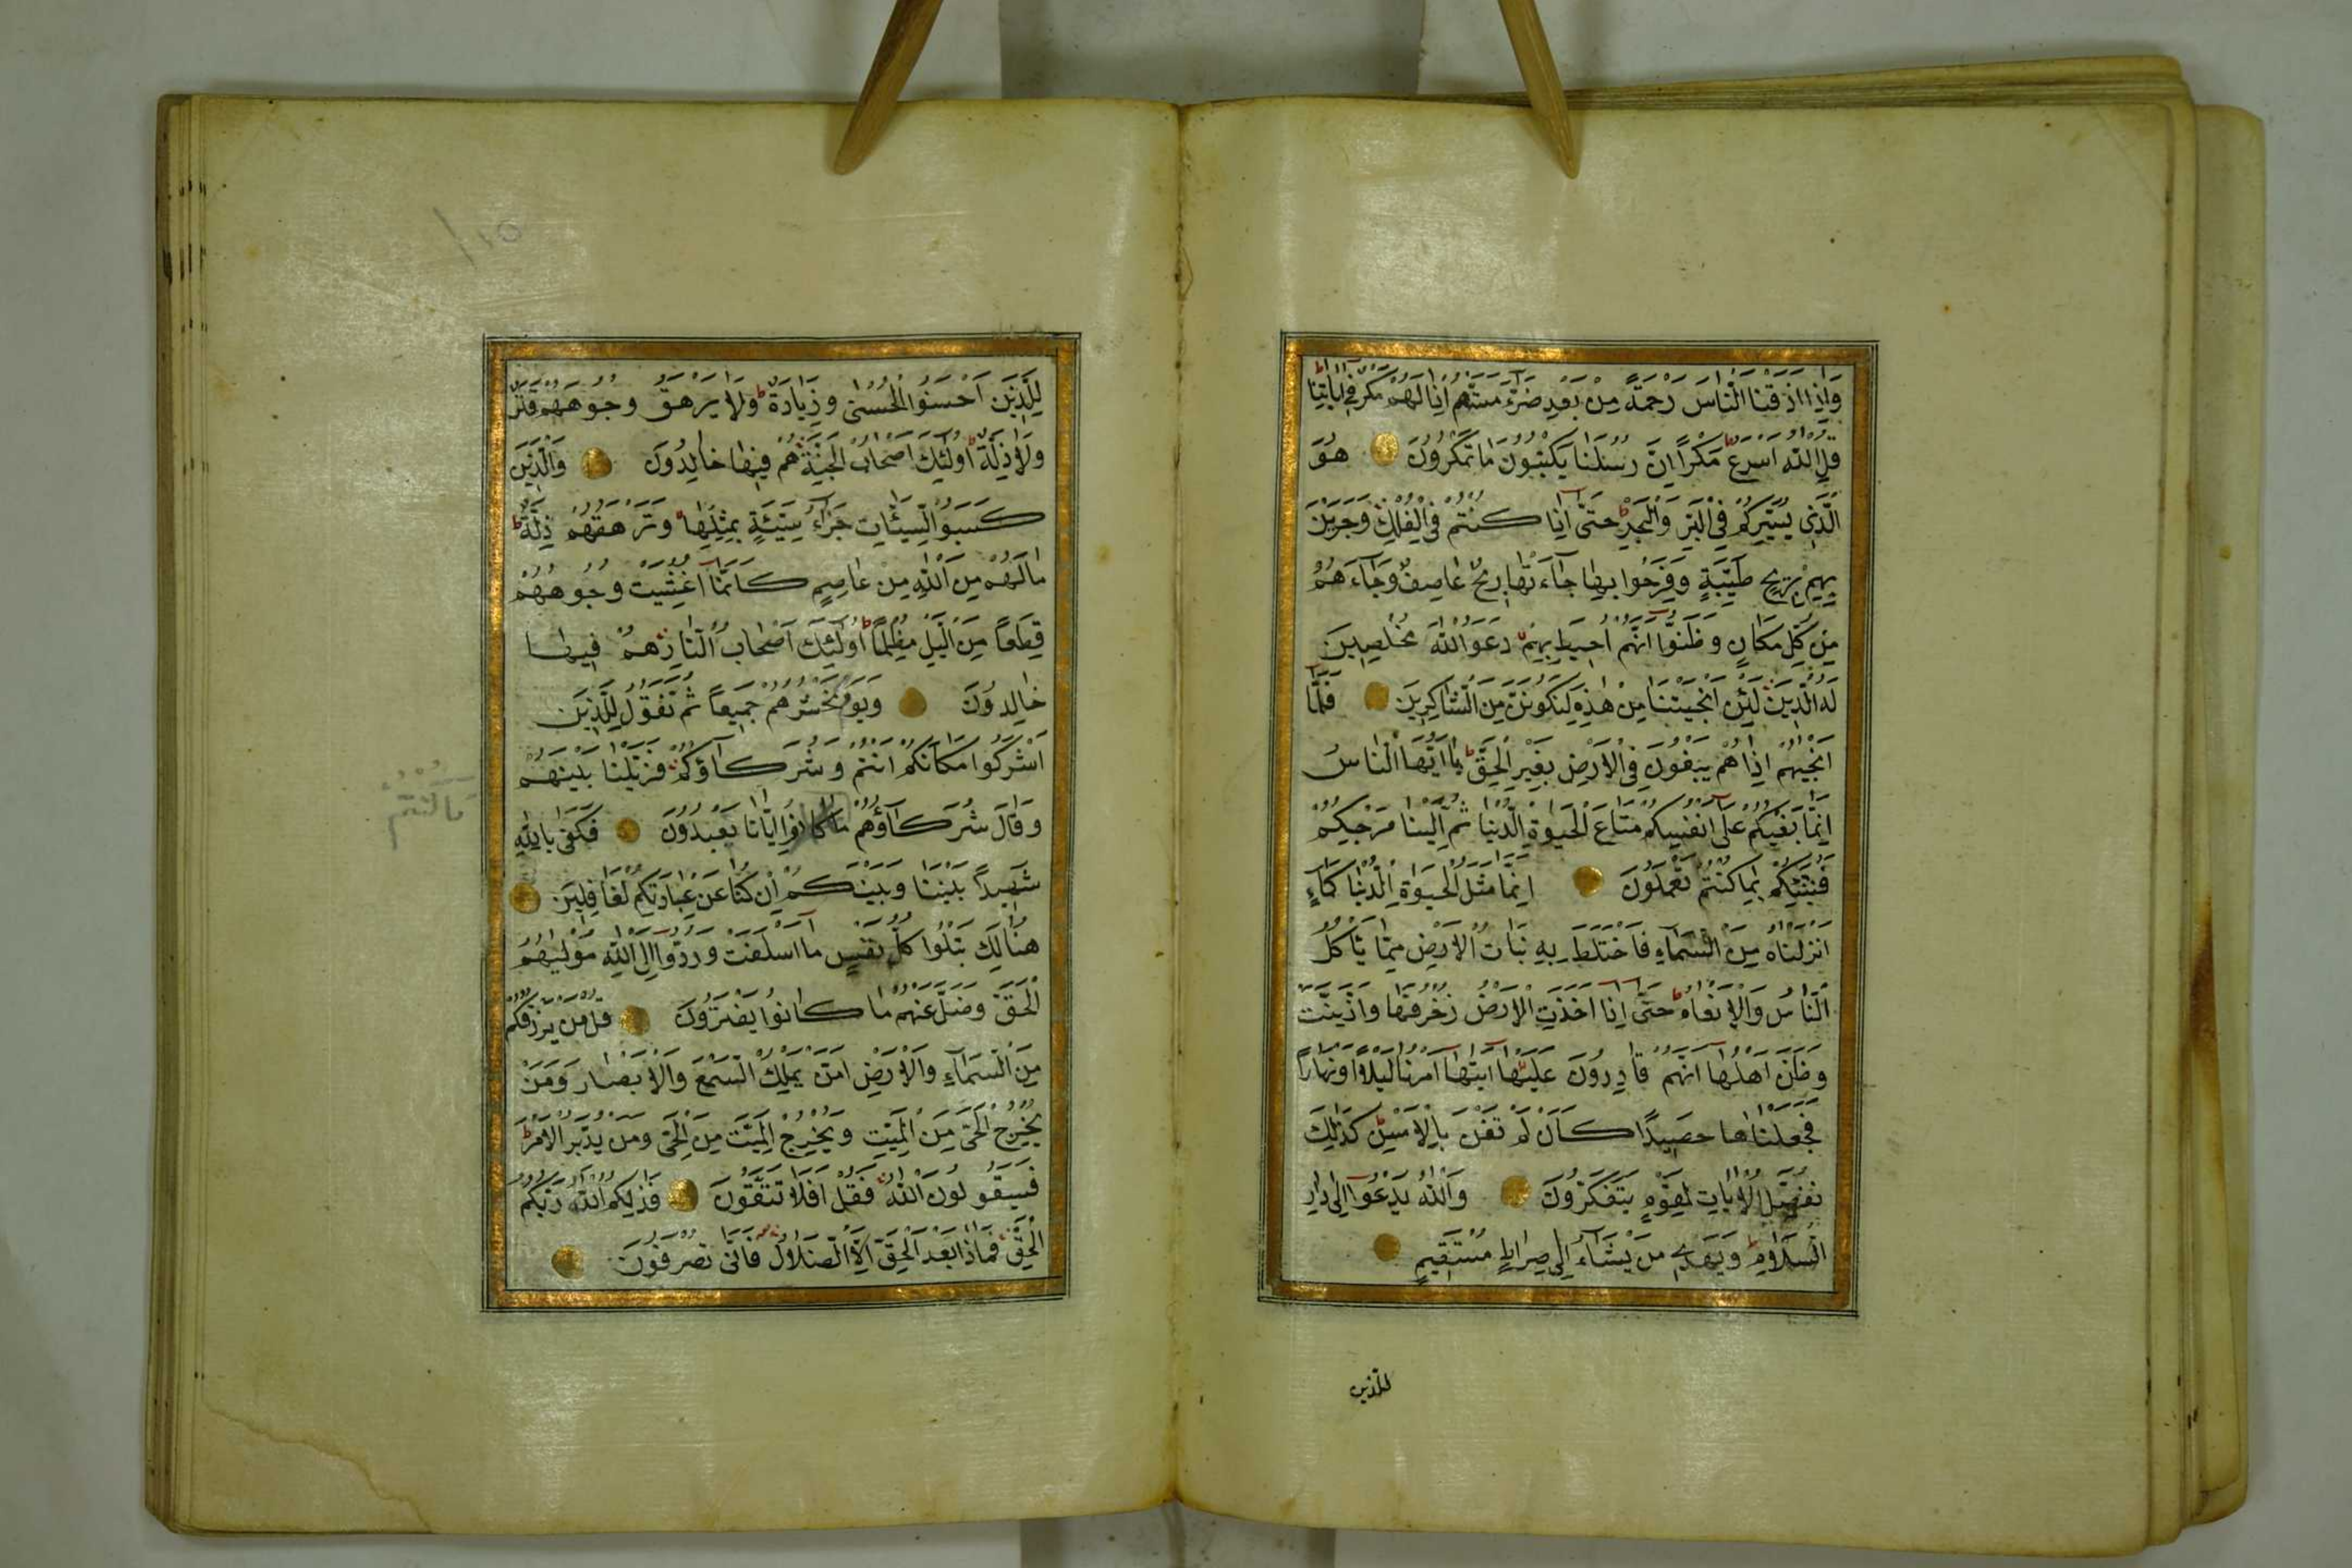 وَاِذَا اَذَقْنَا النَّاسَ رَحْمَةً مِنْ بَعْدِ ضَرَّآءَ مَسَّتْهُمْ اِذَا لَهُمْ مَكْرٌ فِٓى اٰيَاتِنَاۜ
قُلِ اللّٰهُ اَسْرَعُ مَكْرًا اِنَّ رُسُلَنَا يَكْتُبُونَ مَا تَمْكُرُونَ هُوَ
الَّذِى يُسَيِّرُكُمْ فِى الْبَرِّ وَالْبَحْرِ حَتّٰٓى اِذَا كُنْتُمْ فِى الْفُلْكِ وَجَرَيْنَ
بِهِمْ بِرِيحٍ طَيِّبَةٍ وَفَرِحُوا بِهَا جَآءَتْهَا رِيحٌ عَاصِفٌ وَجَآءَهُمُ
مِنْ كُلِّ مَكَانٍ وَظَنُّٓوا اَنَّهُمْ اُحِيطَ بِهِمْ دَعَوُا اللّٰهَ مُخْلِصِينَ
لَهُ الدِّينَ لَئِنْ اَنْجَيْتَنَا مِنْ هٰذِهِ لَنَكُونَنَّ مِنَ الشَّاكِرِينَ فَلَمَّٓا
اَنْجٰيهُمْ اِذَا هُمْ يَبْغُونَ فِى الْاَرْضِ بِغَيْرِ الْحَقِّ يَٓا اَيُّهَا النَّاسُ
اِنَّمَا بَغْيُكُمْ عَلٰٓى اَنْفُسِكُمْ مَتَاعَ الْحَيٰوةِ الدُّنْيَا ثُمَّ اِلَيْنَا مَرْجِعُكُمْ
فَنُنَبِّئُكُمْ بِمَا كُنْتُمْ تَعْمَلُونَ اِنَّمَا مَثَلُ الْحَيٰوةِ الدُّنْيَا كَمَآءٍ
اَنْزَلْنَاهُ مِنَ السَّمَآءِ فَاخْتَلَطَ بِهِ نَبَاتُ الْاَرْضِ مِمَّا يَاْكُلُ
النَّاسُ وَالْاَنْعَامُ حَتّٰٓى اِذَٓا اَخَذَتِ الْاَرْضُ زُخْرُفَهَا وَازَّيَّنَتْ
وَظَنَّ اَهْلُهَٓا اَنَّهُمْ قَادِرُونَ عَلَيْهَٓا اَتٰيهَٓا اَمْرُنَا لَيْلًا اَوْ نَهَارًا
فَجَعَلْنَاهَا حَصِيدًا كَاَنْ لَمْ تَغْنَ بِالْاَمْسِ كَذٰلِكَ
نُفَصِّلُ الْاٰيَاتِ لِقَوْمٍ يَتَفَكَّرُونَ وَاللّٰهُ يَدْعُٓوا اِلٰى دَارِ
السَّلَامِ وَيَهْدِى مَنْ يَشَآءُ اِلٰى صِرَاطٍ مُسْتَقِيمٍ
للذين
لِلَّذِينَ اَحْسَنُوا الْحُسْنٰى وَزِيَادَةٌ وَلَا يَرْهَقُ وُجُوهَهُمْ قَتَرٌ
وَلَا ذِلَّةٌ اُولٰٓئِكَ اَصْحَابُ الْجَنَّةِ هُمْ فِيهَا خَالِدُونَ وَالَّذِينَ
كَسَبُوا السَّيِّئَاتِ جَزَآءُ سَيِّئَةٍ بِمِثْلِهَا وَتَرْهَقُهُمْ ذِلَّةٌ
مَا لَهُمْ مِنَ اللّٰهِ مِنْ عَاصِمٍ كَاَنَّمَٓا اُغْشِيَتْ وُجُوهُهُمْ
قِطَعًا مِنَ الَّيْلِ مُظْلِمًا اُولٰٓئِكَ اَصْحَابُ النَّارِ هُمْ فِيهَا
خَالِدُونَ وَيَوْمَ نَحْشُرُهُمْ جَمِيعًا ثُمَّ نَقُولُ لِلَّذِينَ
اَشْرَكُوا مَكَانَكُمْ اَنْتُمْ وَشُرَكَآؤُكُمْ فَزَيَّلْنَا بَيْنَهُمْ
وَقَالَ شُرَكَآؤُهُمْ مَا اِيَّانَا تَعْبُدُونَ فَكَفٰى بِاللّٰهِ
مَا كُنْتُمْ
شَهِيدًا بَيْنَنَا وَبَيْنَكُمْ اِنْ كُنَّا عَنْ عِبَادَتِكُمْ لَغَافِلِينَ
هُنَالِكَ تَبْلُوا كُلُّ نَفْسٍ مَٓا اَسْلَفَتْ وَرُدُّٓوا اِلَى اللّٰهِ مَوْلٰيهُمُ
الْحَقِّ وَضَلَّ عَنْهُمْ مَا كَانُوا يَفْتَرُونَ قُلْ مَنْ يَرْزُقُكُمْ
مِنَ السَّمَآءِ وَالْاَرْضِ اَمَّنْ يَمْلِكُ السَّمْعَ وَالْاَبْصَارَ وَمَنْ
يُخْرِجُ الْحَىَّ مِنَ الْمَيِّتِ وَيُخْرِجُ الْمَيِّتَ مِنَ الْحَىِّ وَمَنْ يُدَبِّرُ الْاَمْرَ
فَسَيَقُولُونَ اللّٰهُ فَقُلْ اَفَلَا تَتَّقُونَ فَذٰلِكُمُ اللّٰهُ رَبُّكُمُ
الْحَقُّ فَمَاذَا بَعْدَ الْحَقِّ اِلَّا الضَّلَالُ فَاَنّٰى تُصْرَفُونَ